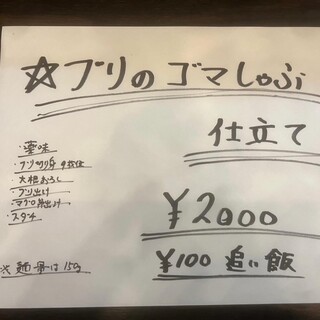 ☆ブリのゴマしゃぶ
仕立て
・薬味
・ブリ切り身
・大根おろし
・ブリ出汁
・マグロ
・スダチ
¥2000
¥100 追い飯
※麺量は150g